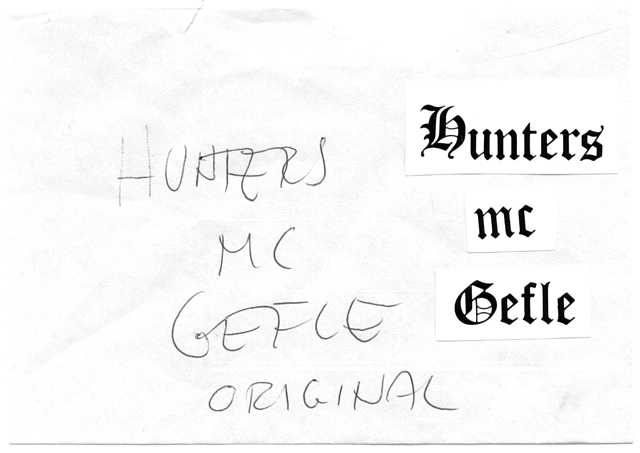 HUNTERS
MC
GEFLE
ORIGINAL
Hunters
mc
Gefle